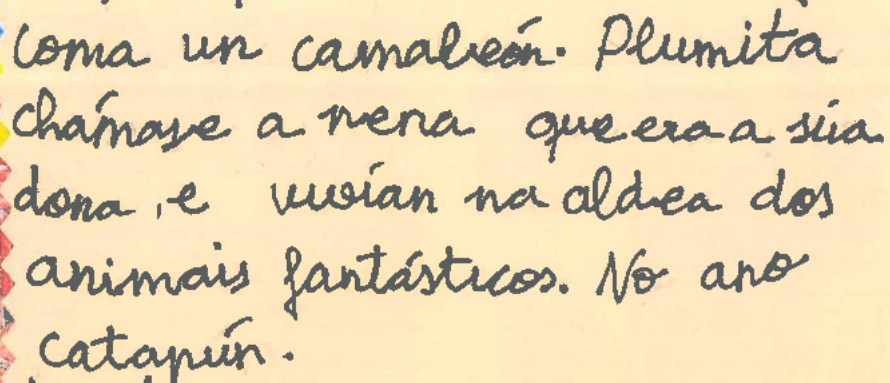 coma un camaleón. Plumita
chámase a nena que era a súa
dona, e vivían na aldea dos
animais fantásticos. No ano
catapún.